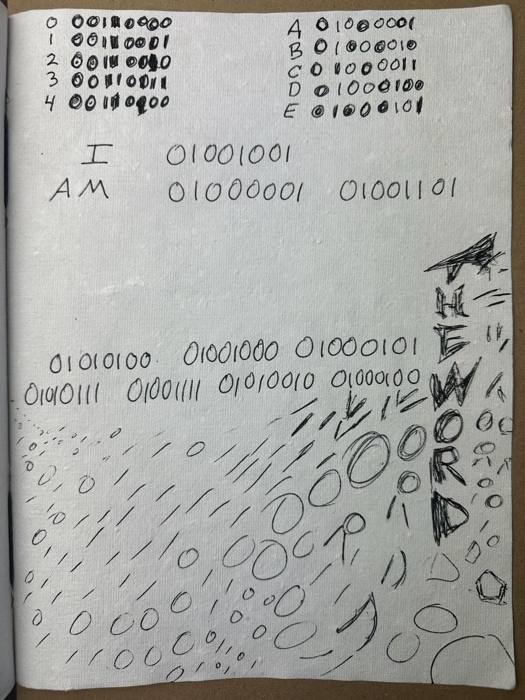 0 00110000
1 00110001
2 00110010
3 00110011
4 00110100
A 01000001
B 01000010
C 01000011
D 01000100
E 01000101
I 01001001
AM 01000001 01001101
01010100 01001000 01000101
01010111 01001111 01010010 01000100
THE WORD